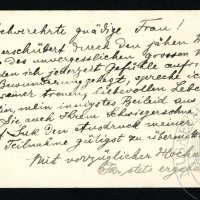 chverehrte gnädige Frau!
erschüttert durch den jähen
des unvergesslichen grossen
den ich jederzeit Gefühle auf
Bewunderung gehegt, spreche i
seiner treuen liebevollen Lebe
in, mein innigstes Beileid aus
Sie auch Ihrem Schwiegersohne
Suk den Ausdruck meiner
Teilnahme gütigst zu übermitt
Mit vorzüglicher Hocha
Ihr stets ergebe